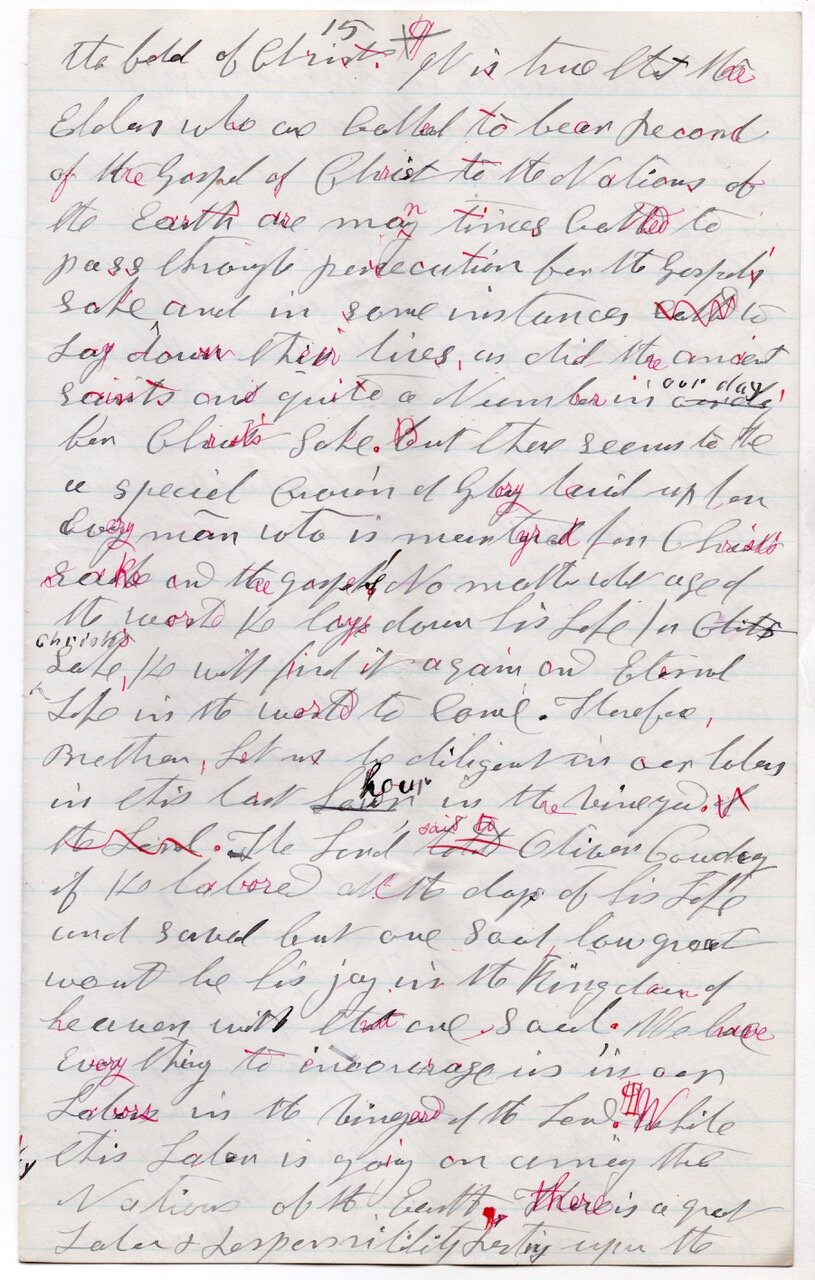 15
the fold of Christ. ¶ It is true that the
Elders who are Called to bear record
of the Gospel of Christ to the Nations of
the Earth are many times Called to
pass through persecution for the Gospels'
sake and in some instances to
Lay down their lives, as did the ancient
saints and quite a Number in our day,
for Christ's Sake. But there seems to be
a special Crown of Glory laid up for
Every man who is martyred for Christ's
sake and the gospel's! No matter who aged
the world He lays down his Life for
Christ's
Sake, He will find it again and Eternal
Life in the world to Come. Therefore,
Brethren, Let us be diligent in our labors
in this last hour in the vineyard. of
the Lord. The Lord said to Oliver Cowdery
if He labored all the days of his Life
and saved but one Soul, how great
would be his joy in the Kingdom of
heaven with that one Soul. We have
Every thing to encourage us in our
Labors in the vineyard of the Lord. ¶ While
this Labor is going on among the
Nations of the Earth, There is a great
Labor & Responsibility Resting upon the